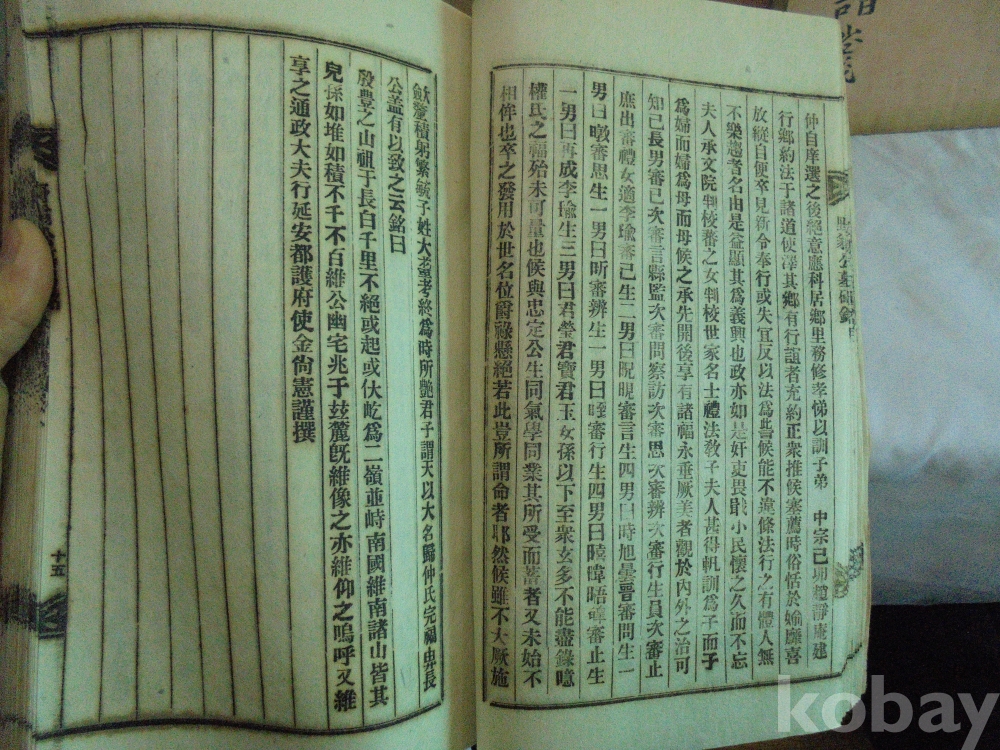 仲自庠選之後絕意應科居鄉里務修孝悌以訓子弟 中宗己卯趙靜庵建
行鄉約法于諸道使澤其鄉有行誼者充約正衆推候塞薦時俗恬於婾靡喜
放縱自便卒見新令奉行或失宜反以法為 候能不違條法行之有體人無
不樂趨者名由是益顯其為義興也政亦如是奸吏畏戢小民懷之久而不忘
夫人承文院判校蕃之女判校世家名士禮法敎子夫人甚得帆訓為子而子
為婦而婦為母而母候之承先開後享有諸福永垂厥美者觀於內外之治可
知已長男審己次審言縣監次審問察訪次審思次審辨次審行生員次審止
庶出審禮女適李瑜審己生二男曰晛晥審言生四男曰時旭曇晉審問生一
男曰暾審思生一男曰昕審辨生一男曰 審行生四男曰曉暐晤 審止生
一男曰再成李瑜生三男曰君瑩君寶君玉女孫以下至衆玄多不能盡錄噫
權氏之福殆未可量也候與忠定公生同氣學同業其所受而蓄者又未始不
相侔也卒之發用於世名位爵祿懸絕若此豈所謂命者耶然候雖不大厥施
歛釐積躬繁毓子姓大耋考終為時所艶君子謂天以大名歸仲氏完福畀長
公蓋有以致之云銘曰
殷豊之山祖于長白千里不絕或起或伏屹為二嶺並峙南國維南諸山皆其
兒孫如堆如積不千不百維公幽宅兆于玆麓旣維像之亦維仰之嗚呼又維
享之通政大夫行延安都護府使金尙憲謹撰
十五
kobay